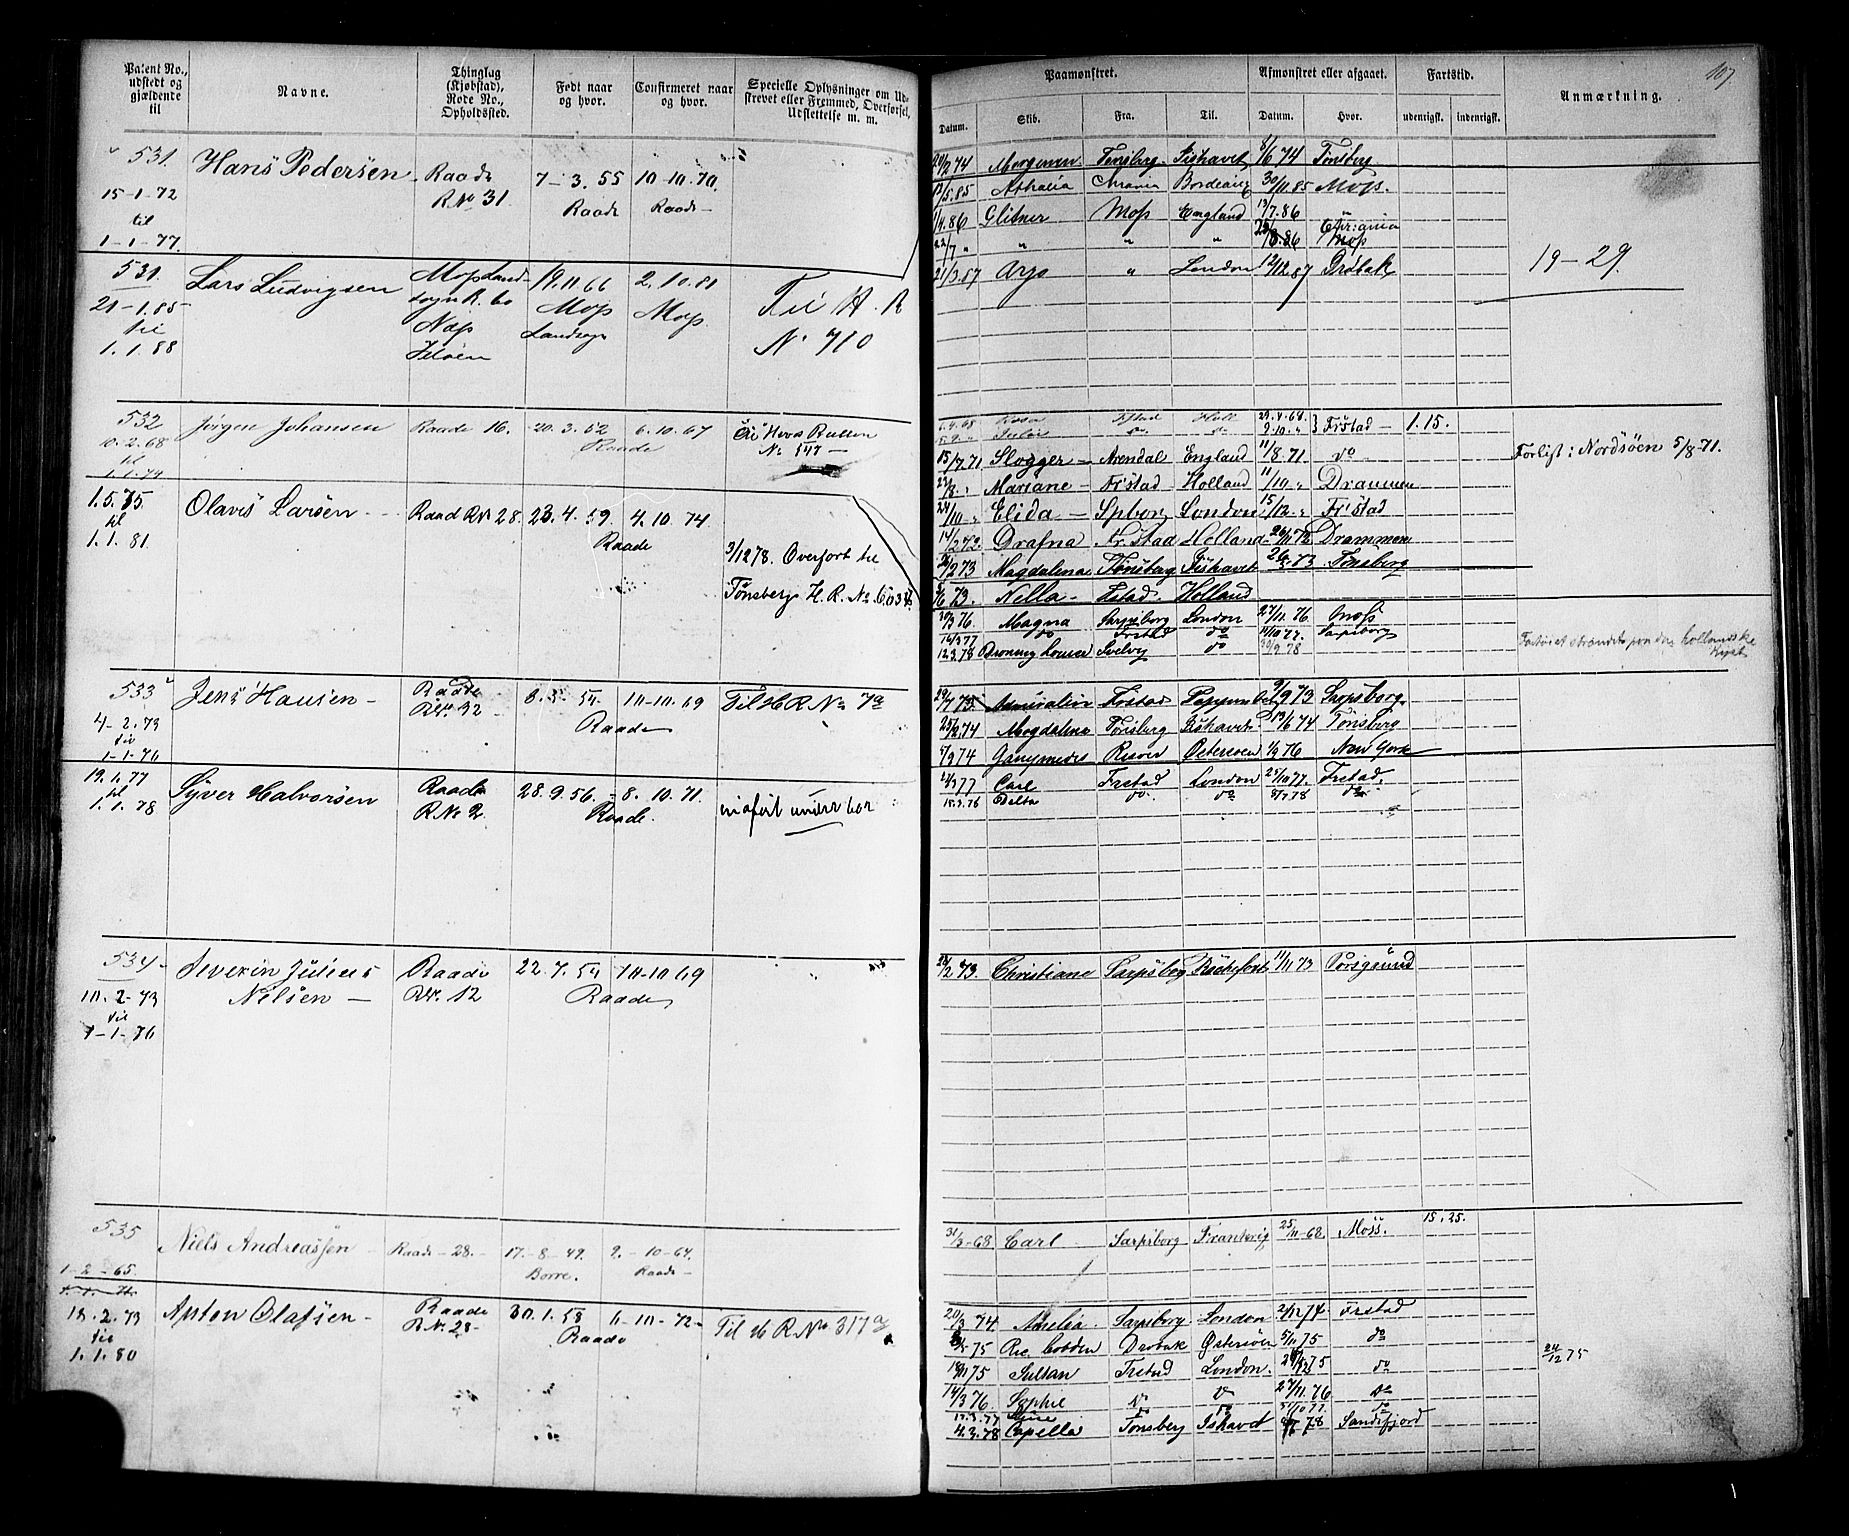 Patent No., udstedt og gjældende til
Navne.
Thinglag (Kjøbstad), Rode No., Opholdssted.
Født naar og hvor.
Confirmeret naar og hvor.
Specielle Oplysninger om Udskrevet eller Fremmed, Overførsel, Udslettelse m. m.
Paamønstret.
Afmønstret eller afgaaet.
Fartstid.
Anmærkning.
107
Datum.
Skib.
Fra.
Til.
Datum.
Hvor.
udenrigsk.
indenrigsk.
531.
15-1-72
til
1-1-77.
Hans Pedersen
Raade
R.No 31
7-3.55
Raade
10-10.70.
Raade
531.
21-1.85
til
1.1.88
Lars Ludvigsen
Moss Landsogn R. 60
Næs
Jeløen
19.11.66
Moss
Landsogn
2.10.81
Moss
Til H. R
No 710
532
10.2.68
til
1.1.74
Jörgen Johansen
Raade 16.
20.3.52
6.10.67
Raade
Til Hoved Rullen
No 547
1.5.75.
til
1.1.81.
Olavis Larsen
Raad RN 28.
23.4.59.
4.10.74
Raade
3/12 78. Overført til
Tønsbergs H. R. No
533
4-2.73
til
1-1-76
Jens Hansen
Raade
RNo. 32
8.3.54
10-10.69
Raade
Til H R No 7a
19.1.77
til
1.1.78
Syver Halvorsen
Raade
R No 2.
28.9.56.
8.10.71.
Raade.
indført under
534
10.2-73
til
1-1-76
Severin Julius
Nilsen
Raade
RNo. 12
22.7.54
10-10 69
Raade
535
1-2-65
Niels Andreassen
Raade-28.
17-8-49.
Borre.
9.-10-64.
Raade
18.2.73
til
1.1.80
Anton Olafsen
Raade
R.N. 28
30.1.58
6-10-72
Raade
Til H R No 317a
20/2 74 Morgenen Tønsberg Ishavet 8/6 74 Tønsberg
Athalia Chrania Bordeaux 30/11.85 Moss.
1/4.86 Glitner Moss England 13/7.86
22/7 " " " " 28/8.86 Chr:ania
Moss
21/3.87 Argo " London 12/12.87 Drøbak
19-29.
6.4.68 Rosa Fstad Holl 29.4.68.
9.10." Fr:stad 1.15.
15/7.71 Slogger Arendal England 11/8.71 do
Forlist: Nordsøen 5/8-71.
23/8." Mariane Fr:stad Holland 11/10 " Drammen
24/10 " Elida Spborg London 15/12 " Fr:stad
14/2.72. Drafna Fr.stad Holland 26/11 72 Drammen
/2 73 Magdalena Tønsberg Ishavet 73 Tønsberg
/6 73. Nella Fstad. Holland
30/3 76. Magna Sarpsborg London 27/11.76 Moss
14/3 77 do Frstad do 11/10 77. Sarpsborg
12.3.78 Dronning Louise Svelvig do 30/9.78
Fartøiet strandet paa den hollandske
Kyst
29/7 73 Admiralen Frstad 9/9 73 Sarpsborg
25/2.74 Magdalena Tønsberg Ishavet 13/6 74 Tønsberg
/9 74 Ganymedes Risøer Østersøen 76 New York
12/3 77 Carl Frstad London 27/10 77. Frstad.
18.3.76 Delta do. do 78 do.
24/2 73. Christiane Sarpsbog Rochefort 11/11 73 Porsgrund
31/3-68. Carl Sarpsborg 25/11-68. Moss. 15.25.
20/3 74. Amelia Sarpsborg London 2/12 74 Frstad
75 Ric. Cobden Drøbak Østersøen 5/11.75 do
75 Sultan Frstad London. 75 do
24/12 75
14/3 76 Sophie do do 27/11.76 do
13.3.77 do do 77 do
4.3.78 Capella Tønsberg Ishavet 78 Sandefjord